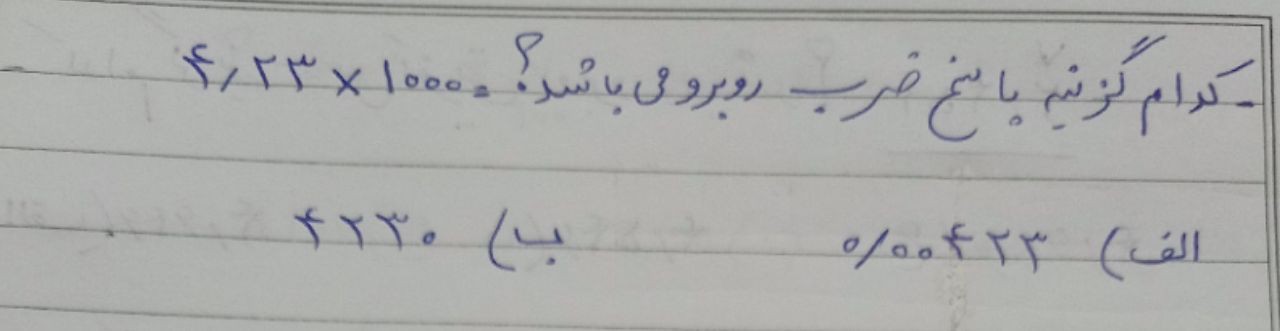 - کدام گزینه پاسخ ضرب روبرو می باشد؟ ۴٫۲۳ × ۱۰۰۰ =
الف) ۰/۰۰۴۲۳ ب) ۴۲۳۰